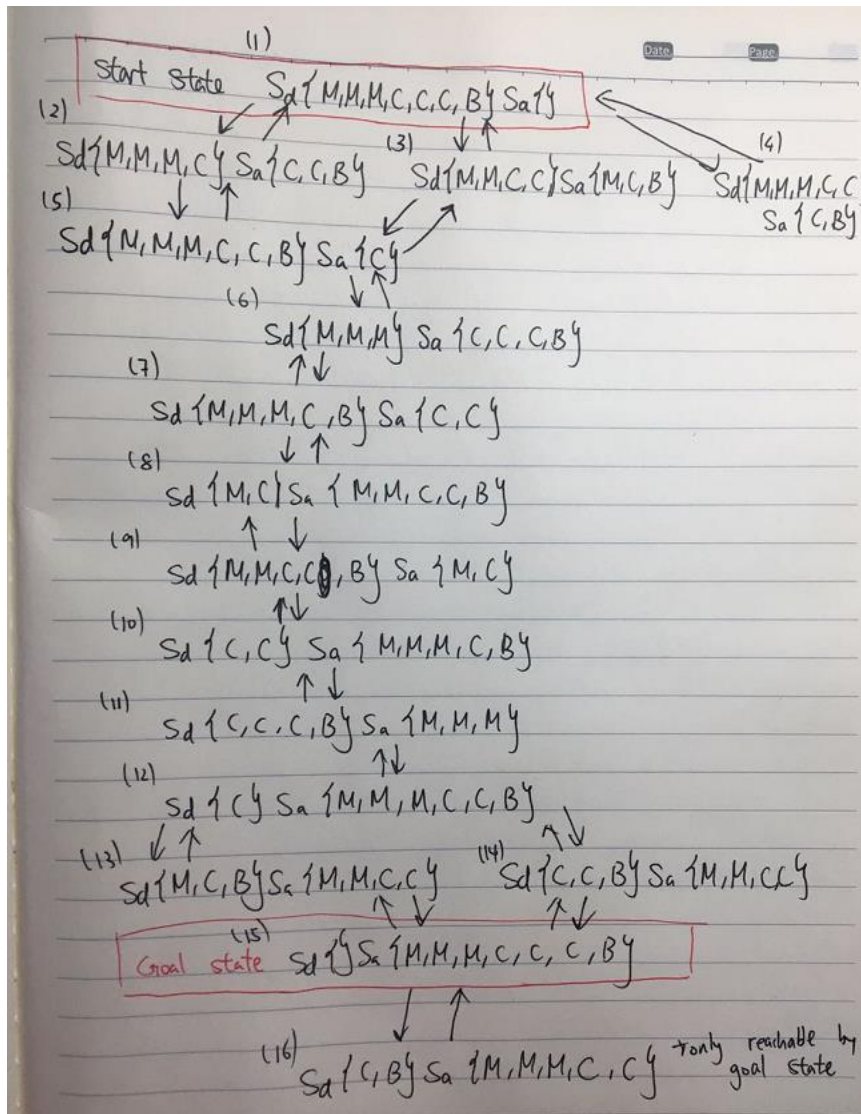 Date Page
(1)
Start state Sd{M,M,M,C,C,C,B} Sa{}
(2) (3) (4)
Sd{M,M,M,C} Sa{C,C,B} Sd{M,M,C,C} Sa{M,C,B} Sd{M,M,M,C,C
Sa{C,B}
(5)
Sd{M,M,M,C,C,B} Sa{C}
(6)
Sd{M,M,M} Sa {C,C,C,B}
(7)
Sd {M,M,M,C,B} Sa {C,C}
(8)
Sd {M,C} Sa {M,M,C,C,B}
(9)
Sd {M,M,C,C,B} Sa {M,C}
(10)
Sd {C,C} Sa {M,M,M,C,B}
(11)
Sd {C,C,C,B} Sa {M,M,M}
(12)
Sd {C} Sa {M,M,M,C,C,B}
(13) (14)
Sd{M,C,B} Sa{M,M,C,C} Sd{C,C,B} Sa {M,M,C,C}
(15)
Goal state Sd{} Sa {M,M,M,C,C,C,B}
(16)
Sd {C,B} Sa {M,M,M,C,C} *only reachable by
goal state